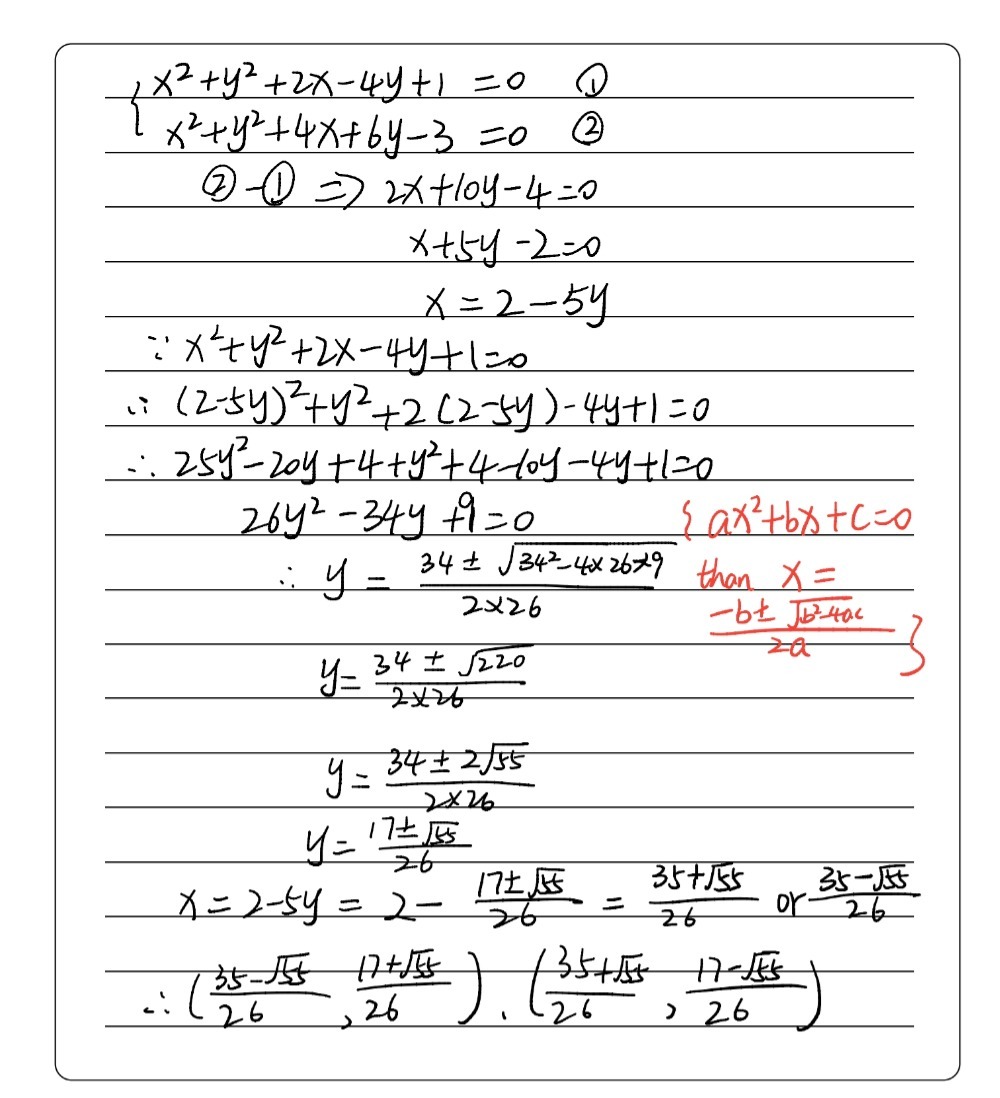 { x²+y²+2x-4y+1 =0 ①
x²+y²+4x+6y-3 =0 ②
②-① => 2x+10y-4=0
x+5y-2=0
x=2-5y
∵ x²+y²+2x-4y+1=0
∴ (2-5y)²+y²+2(2-5y)-4y+1=0
∴ 25y²-20y+4+y²+4-10y-4y+1=0
26y²-34y+9=0 { ax²+bx+c=0
∴ y = (34±√(34²-4×26×9))/(2×26) than x=
(-b±√(b²-4ac))/(2a) }
y=(34±√220)/(2×26)
y=(34±2√55)/(2×26)
y=(17±√55)/26
x=2-5y=2-(17±√55)/26=(35+√55)/26 or (35-√55)/26
∴ ((35-√55)/26, (17+√55)/26). ((35+√55)/26, (17-√55)/26)